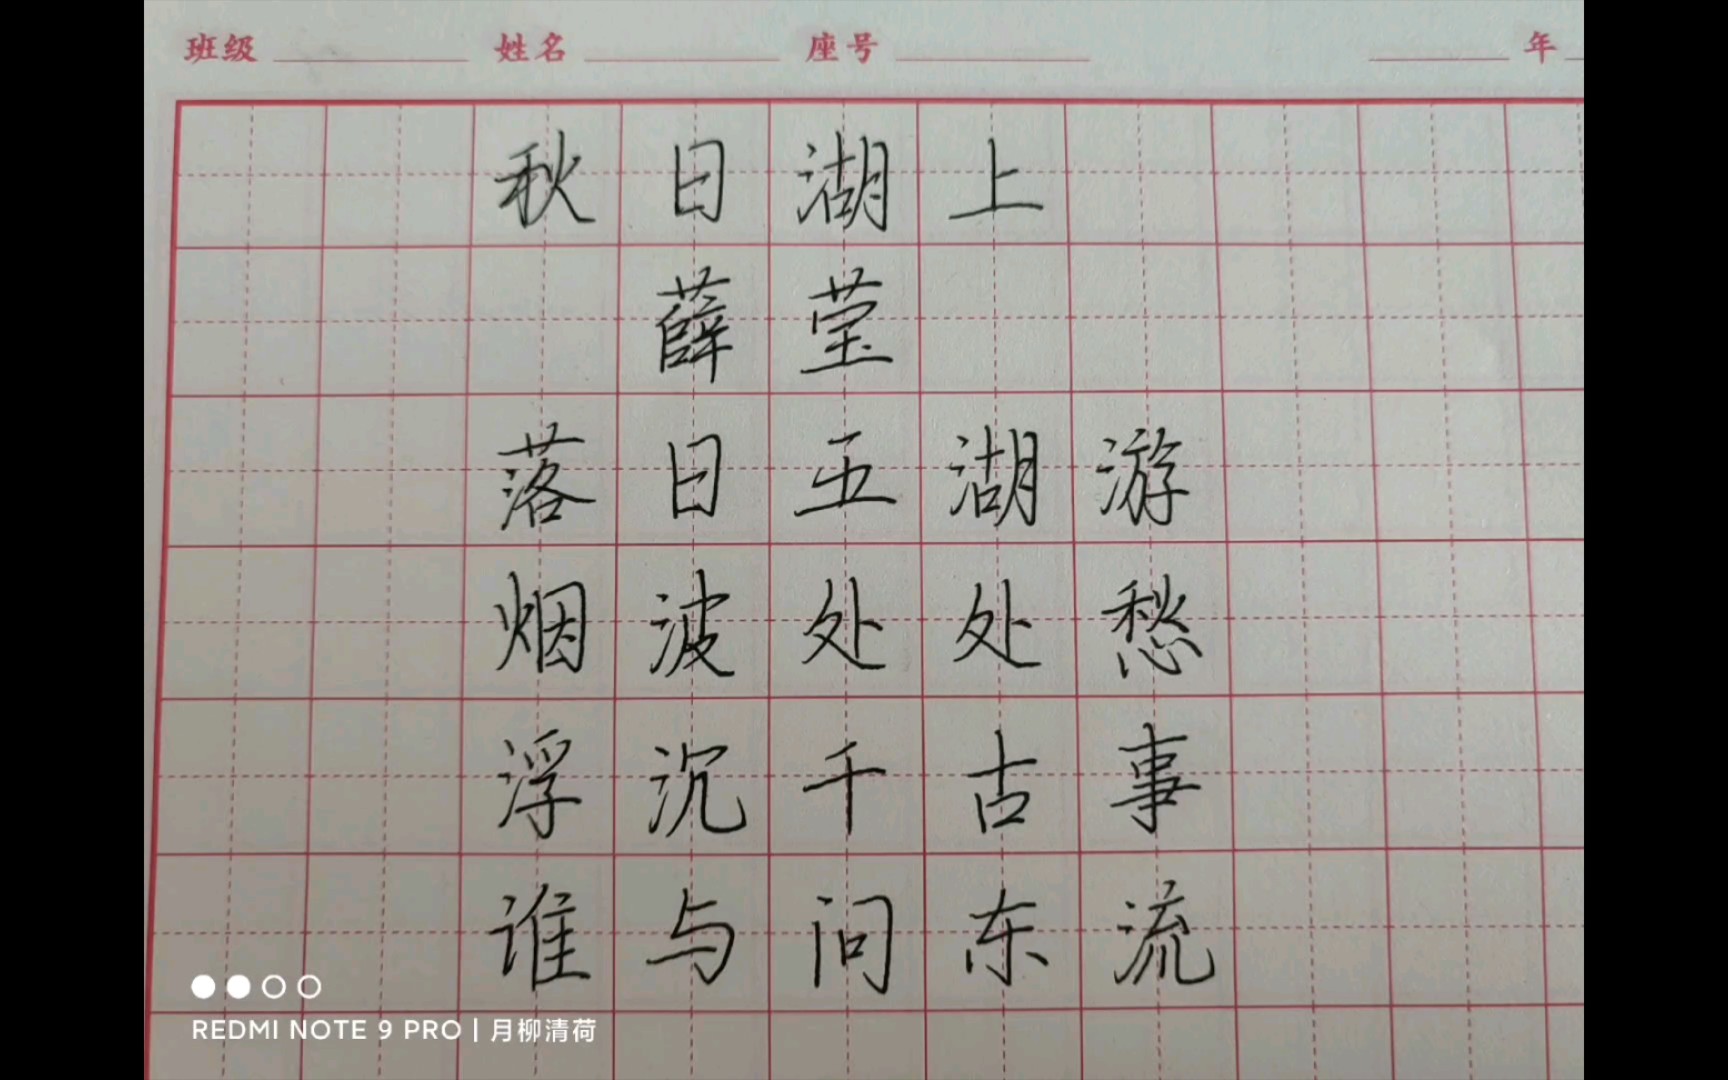 班级 姓名 座号 年
秋日湖上
薛莹
落日五湖游
烟波处处愁
浮沉千古事
谁与问东流
REDMI NOTE 9 PRO | 月柳清荷